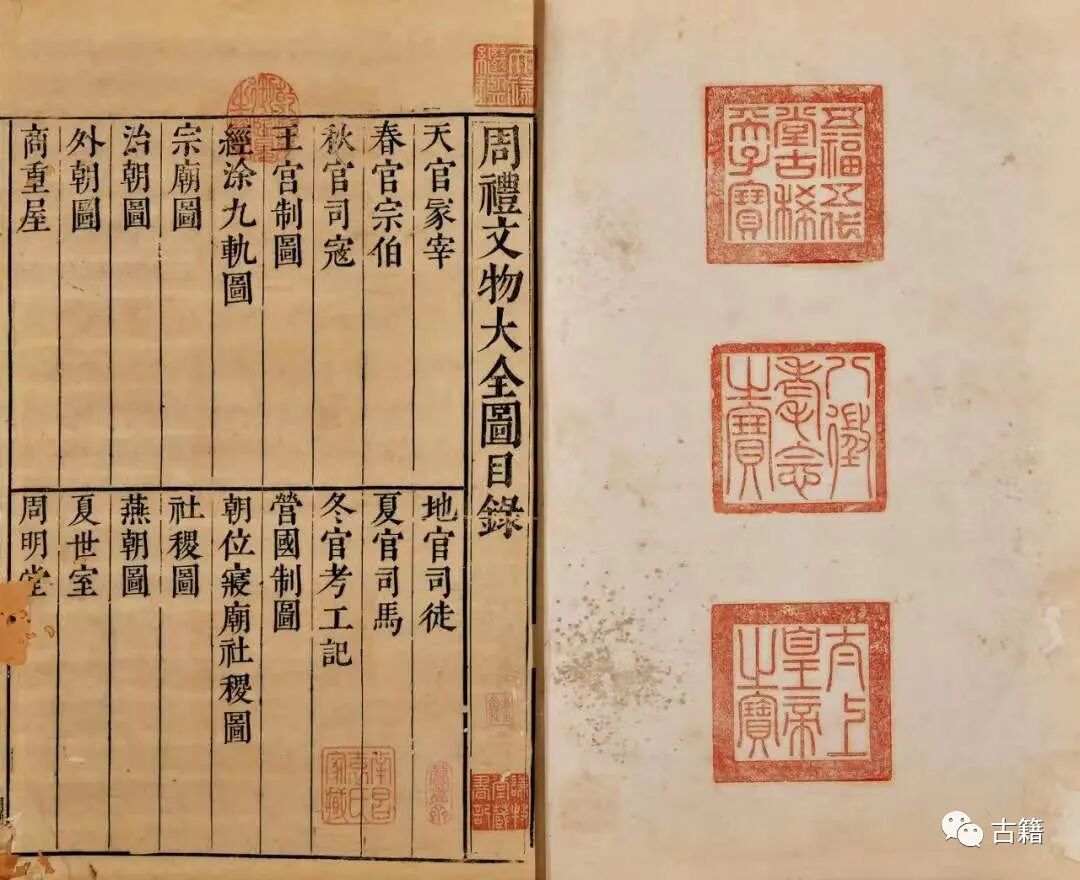 五福五代堂古稀天子寶
八徵耄念之寶
太上皇帝之寶
天祿繼鑑
乾隆御覽之寶
周禮文物大全圖目錄
天官冢宰
地官司徒
春官宗伯
夏官司馬
秋官司寇
冬官考工記
王宮制圖
營國制圖
經涂九軌圖
朝位寢廟社稷圖
宗廟圖
社稷圖
治朝圖
燕朝圖
外朝圖
夏世室
商重屋
周明堂
謙牧堂藏書記
南昌袁氏家藏
古籍